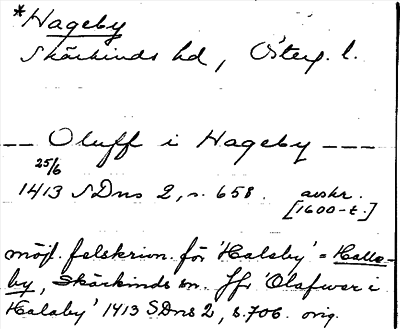 *Hageby
Skärkinds hd, Österg. l.
-- Oluff i Hageby ---
25/6
1413 SDns 2, s. 658. avskr.
[1600-t.]
möjl. felskrivn. för 'Halaby' = Halle-
by, Skärkinds sn. Jfr 'Olafwer i
Halaby' 1413 SDns 2, s. 706. orig.